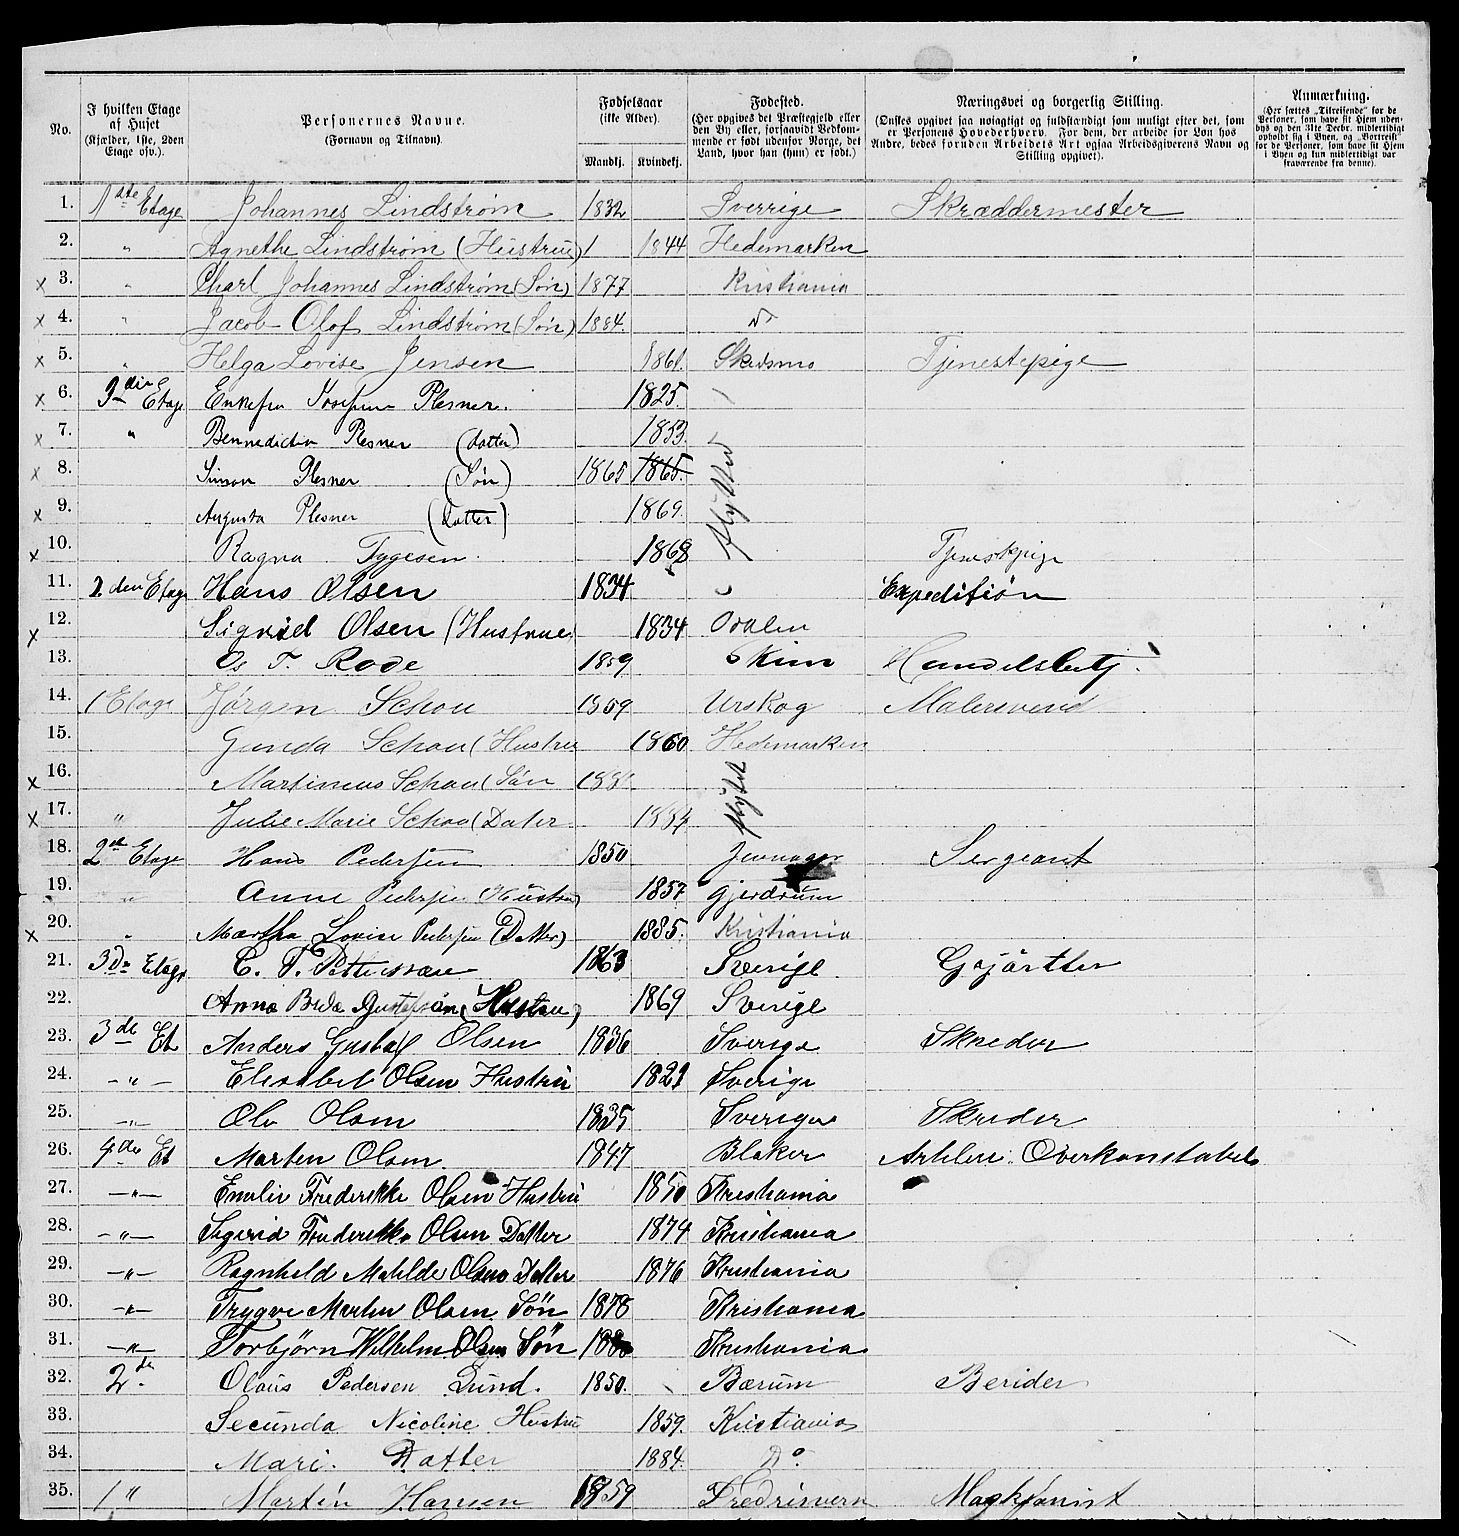 No. | I hvilken Etage af Huset (Kjælder, 1ste, 2den Etage osv.). | Personernes Navne. (Fornavn og Tilnavn). | Fødselsaar (ikke Alder). Mandkj. | Kvindekj. | Fødested. (Her opgives det Præstegjeld eller den By eller, forsaavidt Vedkommende er født udenfor Norge, det Land, hvor han (hun) er født.) | Næringsvei og borgerlig Stilling. (Ønskes opgivet saa nøiagtigt og fuldstændigt som muligt efter det, som er Personens Hovederhverv. For dem, der arbeide for Løn hos Andre, bedes foruden Arbeidets Art ogsaa Arbeidsgiverens Navn og Stilling opgivet). | Anmærkning. (Her sættes „Tilreisende" for de Personer, som have sit Hjem udenbys og den 31te Decbr. midlertidigt opholdt sig i Byen, og „Bortreist" for de Personer, som have sit Hjem i Byen og kun midlertidigt var fraværende fra denne).
1. 1ste Etage Johannes Lindstrøm 1832 Sverrige Skræddermester
2. " Agnethe Lindstrøm (Hustrue) 1 1844 Hedemarken
x 3. " Charl Johannes Lindstrøm (Søn) 1877 Kristiania
x 4. " Jacob Olof Lindstrøm (Søn) 1884.
x 5. " Helga Lovise Jensen 1861. Skedsmo Tjenestepige
x 6. 3die Etage Enkefru Josefine Plesner. 1825.
x 7. " Bennedicten Plesner (datter) 1853
x 8. Simon Plesner (Søn) 1865 1865. flyttet
x 9. " Augusta Plesner (Datter) 1869.
x 10. " Ragna Tygesen. 1868 Tjenestpige
11. 2den Etage Hans Olsen 1834 Expeditiøn
x 12. Sigrid Olsen (Hustrue 1834 Odalen
13. Os T. Rode 1859 Skim Handelsbetj.
14. 1 Etage Jørgen Schou 1859 Urskog Malersvend
15. Gunda Schou (Hustru 1860 Hedemarken
x 16. Martineus Schou (Søn flytet
x 17. " Julie Marie Schou (Dater 1884
18. 2den Etage Hans Pedersen 1850 Jevnager Sergeant
19. " Anne Pedersen Hustru) 1857 Gjerdrum
x 20. " Martha Lovise Pedersen (Datter) 1885. Kristiania
21. 3de Etage C. F. Pettersson 1863 Sverige
22. Anna Gustafson (Hustru) 1869 Sverige
23. 3de Et Anders Gustaf Olsen 1836 Sverige Skreder
24. " Elisabet Olsen Hustru 1821 Sverige
25. " Ole Olsen 1835 Sverige Skreder
26. 4de Et Morten Olsen. 1847 Blaker Artileri Overkonstabel
27. " Emelie Frederikke Olsen Hustru 1850 Kristiania
28. " Sigrid Frederikke Olsen Datter 1874 Kristiania
29. " Ragnhild Matilde Olsen Datter 1876 Kristiania
30. " Trygve Martin Olsen Søn 1878 Kristiania
31. " Torbjørn Wilhelm Olsen Søn 1880 Kristiania
32. 2de. Olaus Pedersen Lund. 1850. Bærum Berider
33. Secunda Nicoline Hustru 1859. Kristiania
34. Mari. Datter 1884. Do.
35. 1 " Martin Hansen 1859 Fredriksvern Maskjenist